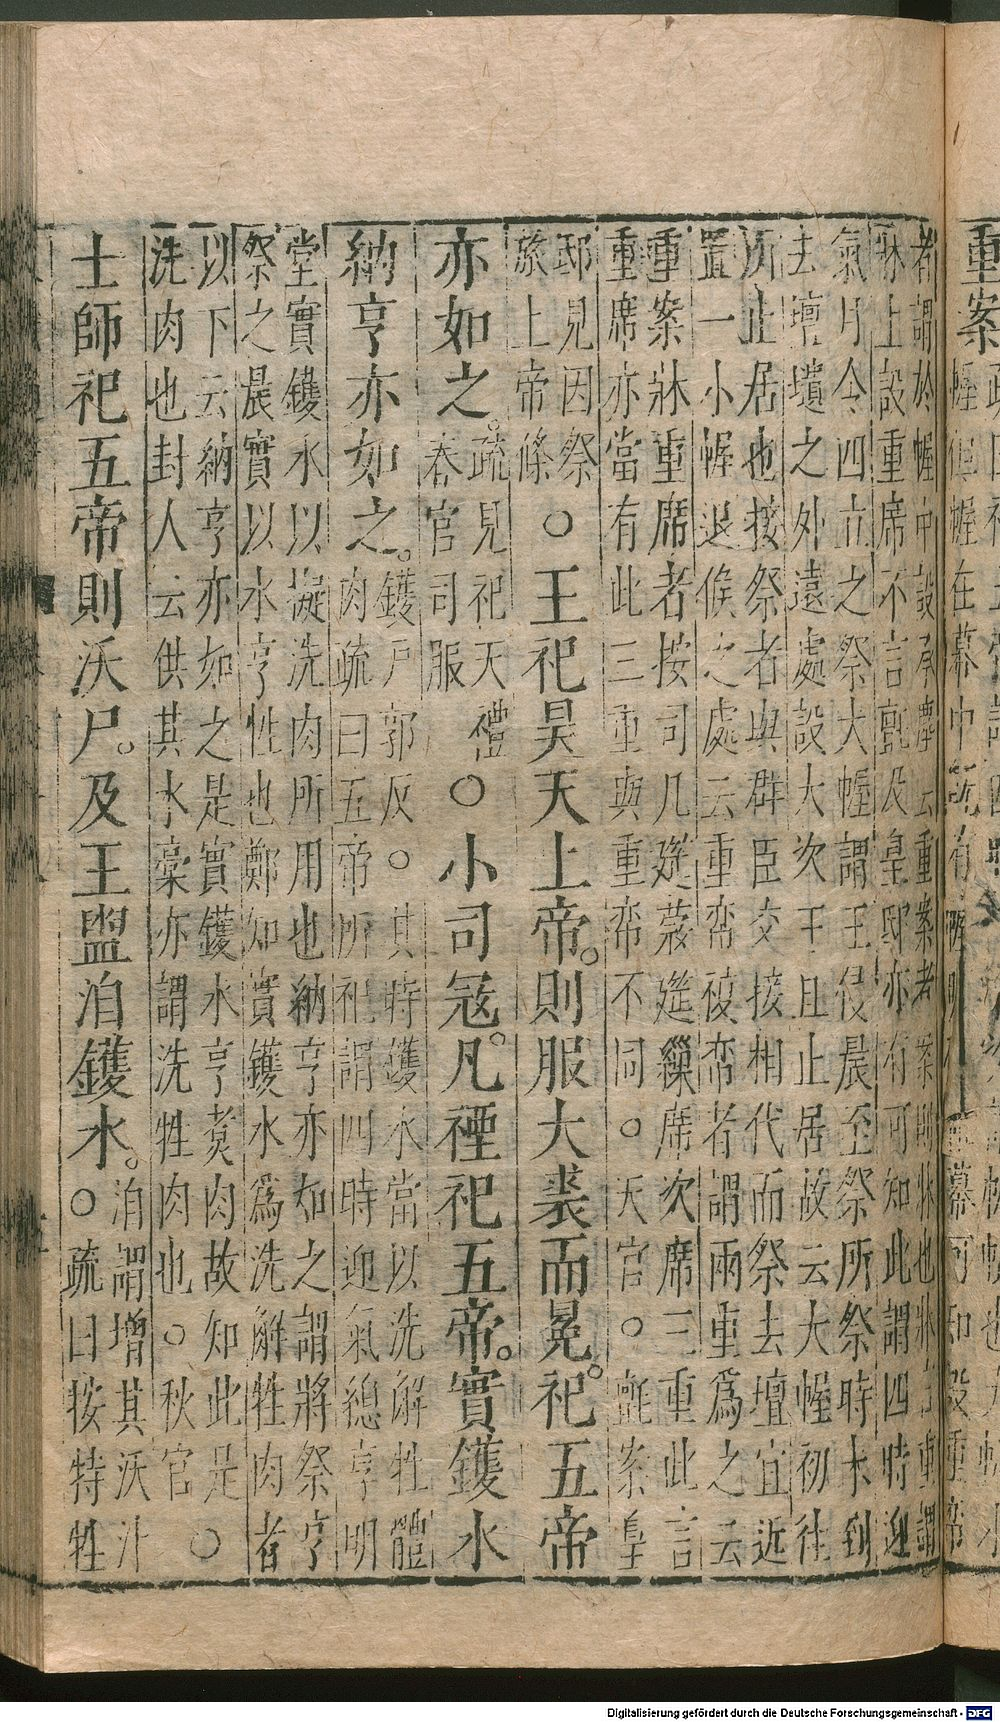 者謂於幄中設承塵云重案者案則牀也牀言重謂
牀上設重席不言氈及皇邸亦有可知此謂四時迎
氣月令四立之祭大幄謂王侵晨至祭所祭時未到
去壇壝之外遠處設大次王且止居故云大幄初往
所止居也接祭者與群臣交接相代而祭去壇宜近
置一小幄退俟之處云重帟複帟者謂兩重爲之云
重案牀重席者按司几筵莞筵繅席次席三重此言
重席亦當有此三重與重帟不同○天官○氈案皇
邸見因祭
旅上帝條
○王祀昊天上帝。則服大裘而冕。祀五帝
亦如之。
疏見祀天禮
春官司服
○小司宼。凡禋祀五帝。實鑊水
納亨亦如之。
鑊戸郭反○其時鑊水當以洗解牲體
肉疏曰五帝所祀謂四時迎氣緫亨明
堂實鑊水以擬洗肉所用也納亨亦如之謂將祭亨
祭之晨實以水亨牲也鄭知實鑊水爲洗解牲肉者
以下云納亨亦如之是實鑊水亨煑肉故知此是
洗肉也封人云供其水槀亦謂洗牲肉也○秋官○
士師祀五帝則沃尸。及王盥洎鑊水。○
洎謂增其沃汁
疏曰按特牲
重案
Digitalisierung gefördert durch die Deutsche Forschungsgemeinschaft - DFG